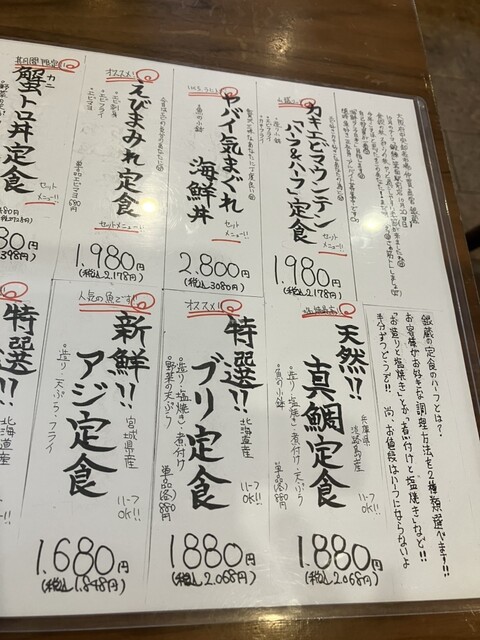 カキエビマウンテン
「ハーフ&ハーフ」定食
セットメニュー!!
1.980円
(税込2.178円)
ヤバイ気まぐれ
海鮮丼
セットメニュー!!
2.800円
(税込3080円)
オススメ!
えびまみれ定食
・エビフライ
・エビマヨ
単品エビマヨ 680円
セットメニュー!!
1.980円
(税込2.178円)
期間限定!!
カニ
蟹トロ丼定食
セットメニュー!!
銀蔵の定食のハーフとは?
お客様がお好きな調理方法を2種類選べます!!
「お造りと塩焼き」とか「煮付けと塩焼き」など!!
半分ずつどうぞ!! 尚、お値段はハーフにならないよ
天然!!
真鯛定食
兵庫県
淡路島産
・造り・塩焼き・煮付け・天ぷら
・魚の小鉢
単品(各)880円
ハーフOK!!
1.880円
(税込2.068円)
オススメ!!
特選!!
ブリ定食
北海道産
・造り・塩焼き・煮付け
・野菜の天ぷら
単品(各)880円
ハーフOK!!
1880円
(税込2.068円)
人気の魚です!
新鮮!!
アジ定食
宮城県産
・造り・天ぷら・フライ
ハーフOK!!
1.680円
(税込1.848円)
特選!!
北海道産